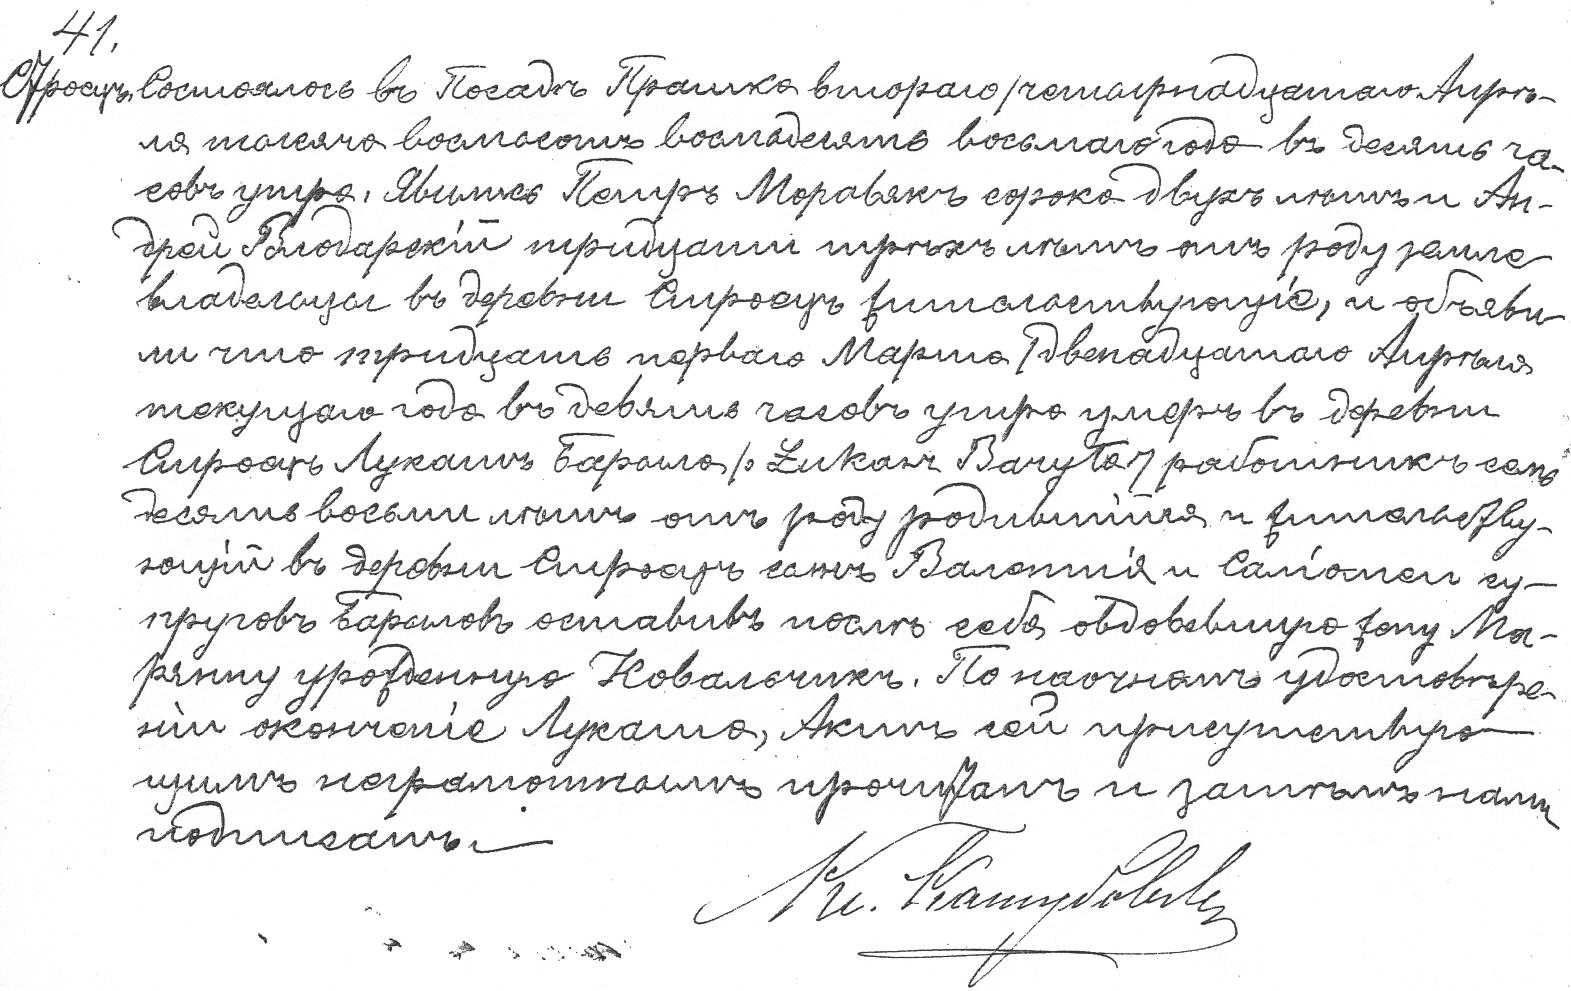 41.
Сыроецъ. Состоялось въ Посадѣ Прашка втораго /четырнадцатаго Апрѣ-
ля тысяча восмьсотъ восмьдесятъ восьмаго года въ десять ча-
совъ утра. Явились Петръ Моравякъ сорока двухъ лѣтъ и Ан-
дрей Влодарскій тридцати трехъ лѣтъ отъ роду земле
владельцы въ деревни жительствующіе, и объяви-
ли что тридцать перваго Марта /двенадцатаго Апрѣля
текущаго года въ девять часовъ утра умеръ въ деревни
Лукашъ Барыла /: Łukasz Baryła :/ работникъ семь
десять восьми лѣтъ отъ роду родившійся и жительству-
ющій въ деревни сынъ Валентія и Саломеи су-
пруговъ Барыловъ оставивъ послѣ себя овдовевшую жону Ма-
рянну урожденную Ковальчикъ. По наочномъ удостовѣре-
ніи окончаніе Лукаша, Актъ сей присутствую-
щимъ неграмотнымъ прочитанъ и затѣмъ нами
подписанъ.
Кс.